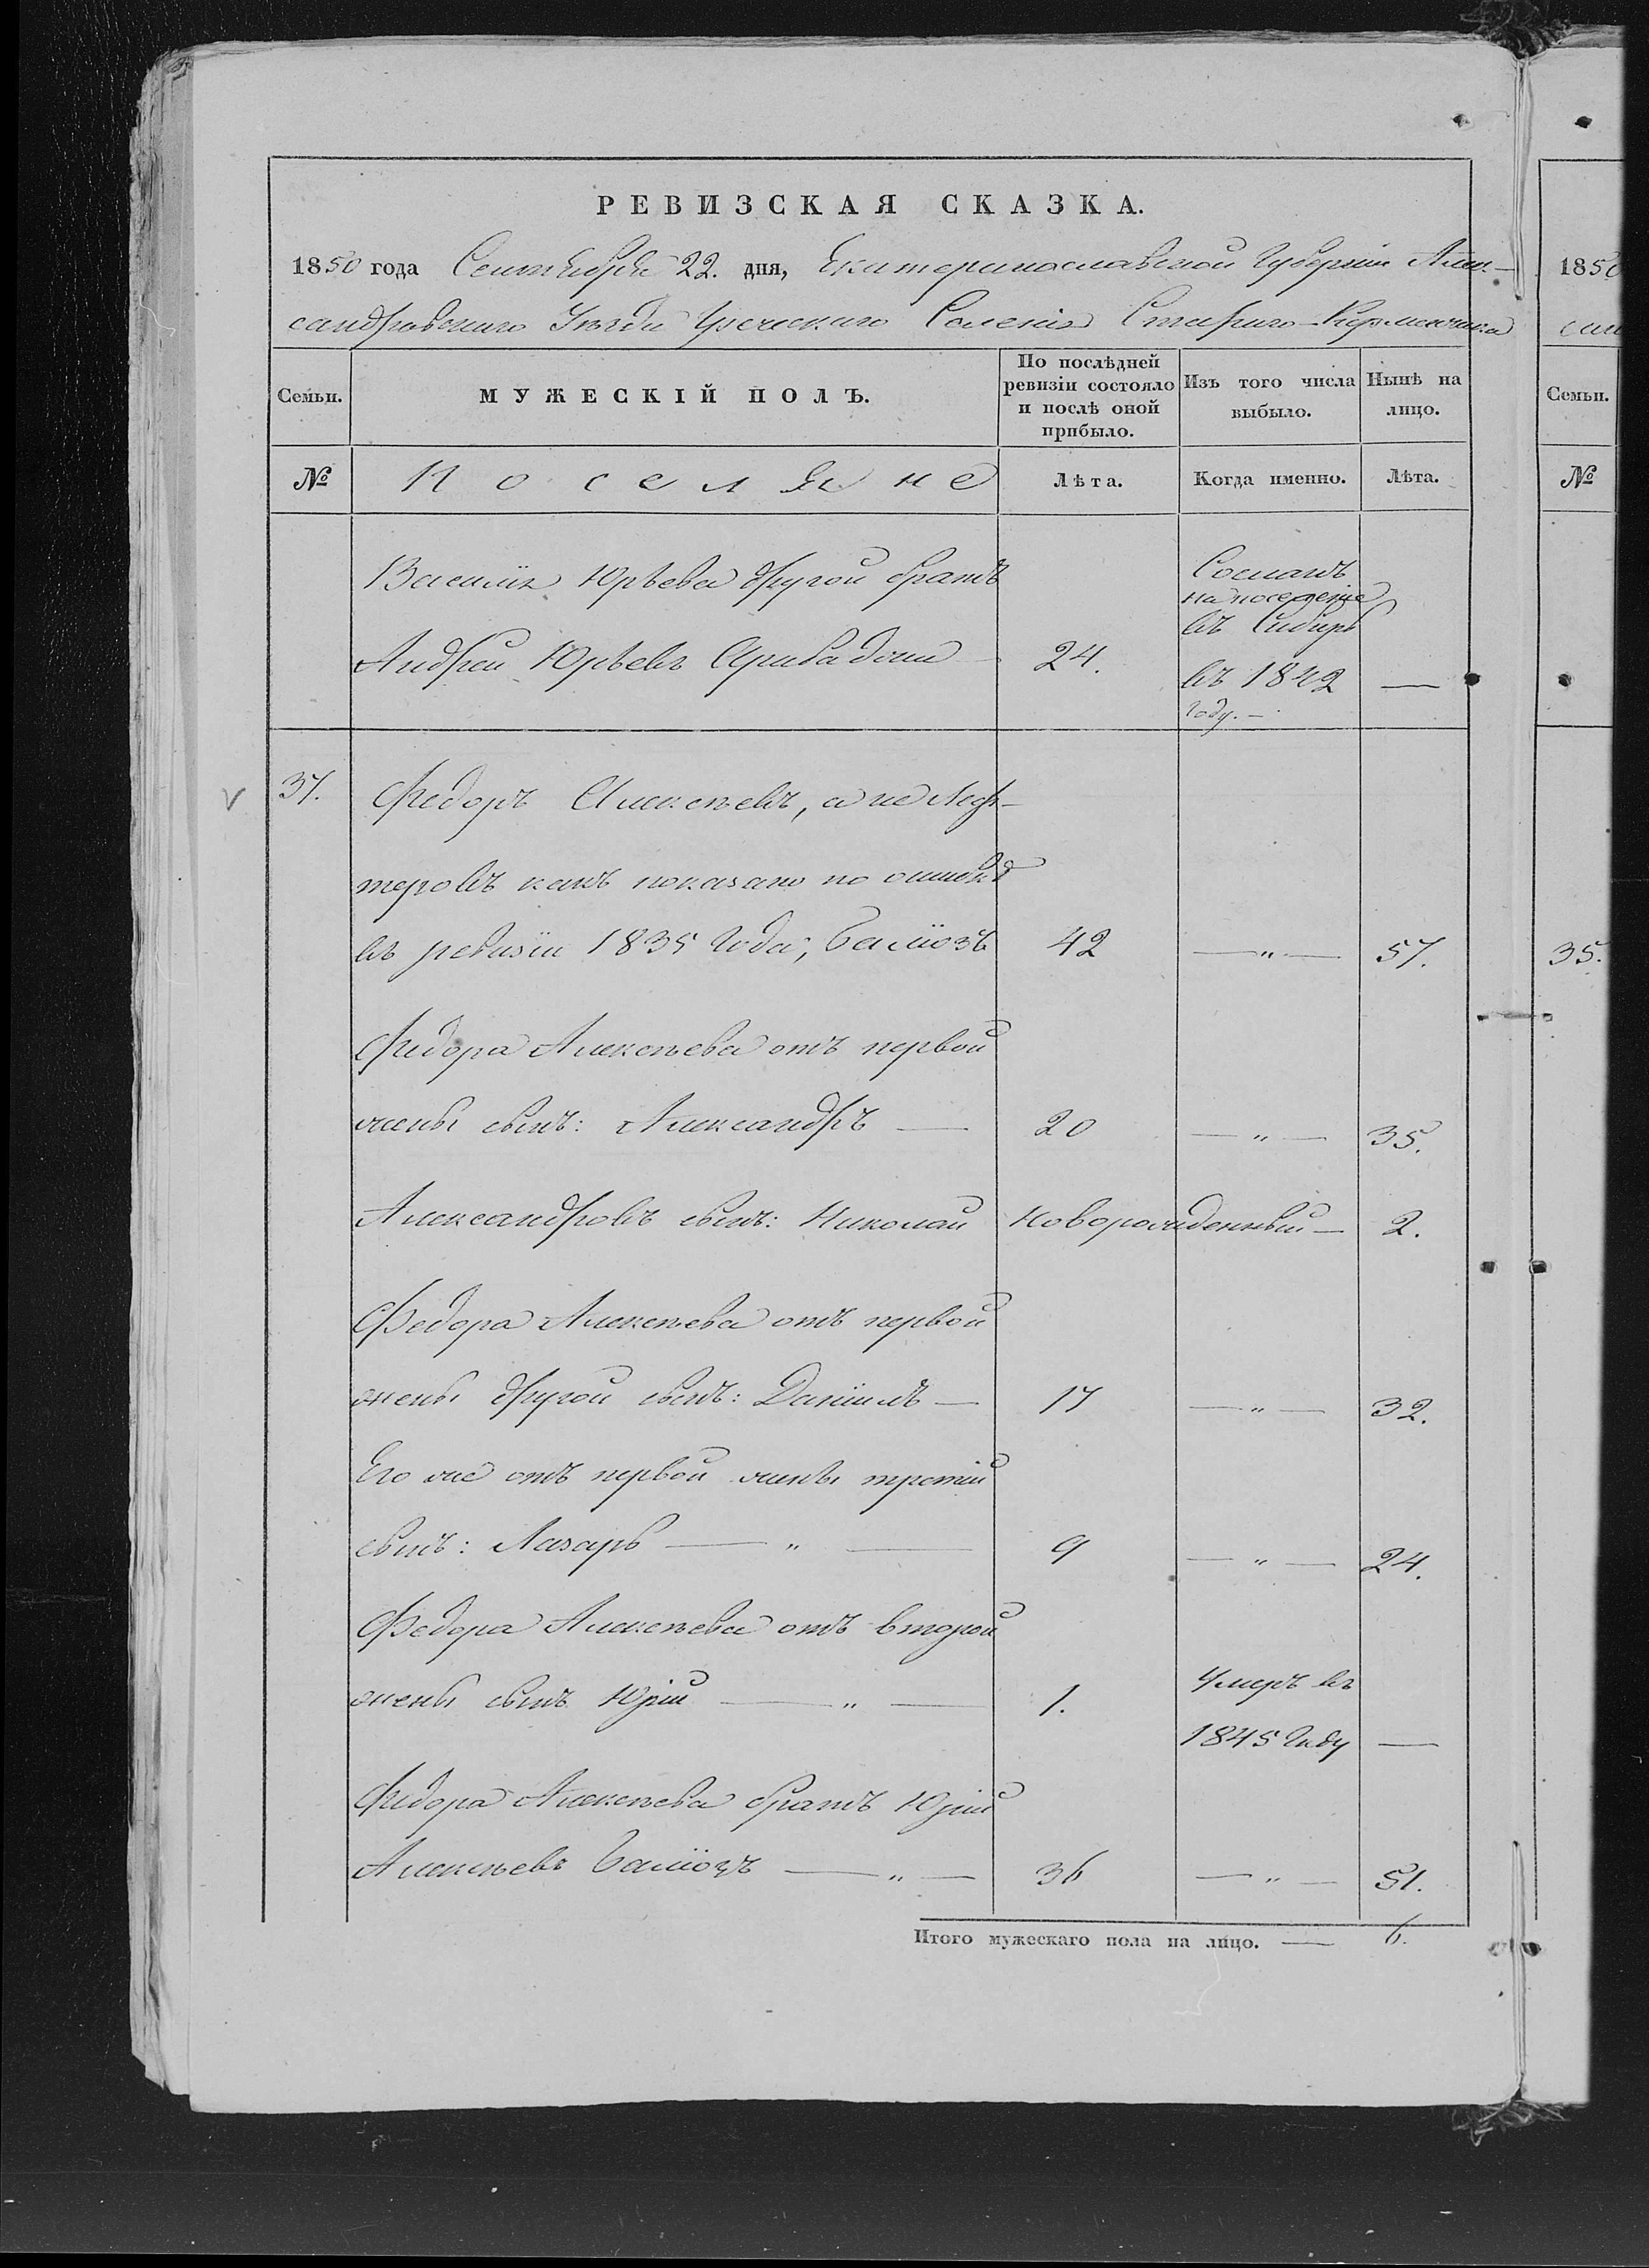 РЕВИЗСКАЯ СКАЗКА.
1850 года Сентября 22. дня, Екатеринославской Губернiи Алек-
сандровскаго Уѣзда Греческаго Селенiя Стараго-Керменчика
Семьи.
МУЖЕСКIЙ ПОЛЪ.
По послѣдней ревизiи состояло и послѣ оной прибыло.
Изъ того числа выбыло.
Нынѣ на лицо.
№
Поселяне
Лѣта.
Когда именно.
Лѣта.
Василiя Юрьева другой братъ
Сосланъ
на поселенiе
въ Сибирь
Андрей Юрьевъ 24.
въ 1842 —
году. —
37. Федоръ Алексѣевъ, а не Леф-
теровъ какъ показано по ошибкѣ
въ ревизiи 1835 года, Балiозъ 42 — „ — 57.
Федора Алексѣева отъ первой
жены сынъ: Александръ — 20 — „ — 35.
Александровъ сынъ: Николай новорожденный — 2.
Федора Алексѣева отъ первой
жены другой сынъ: Данiилъ — 17 — „ — 32.
Его же отъ первой жены третiй
сынъ: Лазарь — „ — 9 — „ — 24.
Федора Алексѣева отъ второй
жены сынъ Юрiй — „ — 1. Умеръ въ
1845 году —
Федора Алексѣева братъ Юрiй
Алексѣевъ Балiозъ — „ — 36 — „ — 51.
Итого мужескаго пола на лицо. — 6.
1850
Семьи.
№
35.